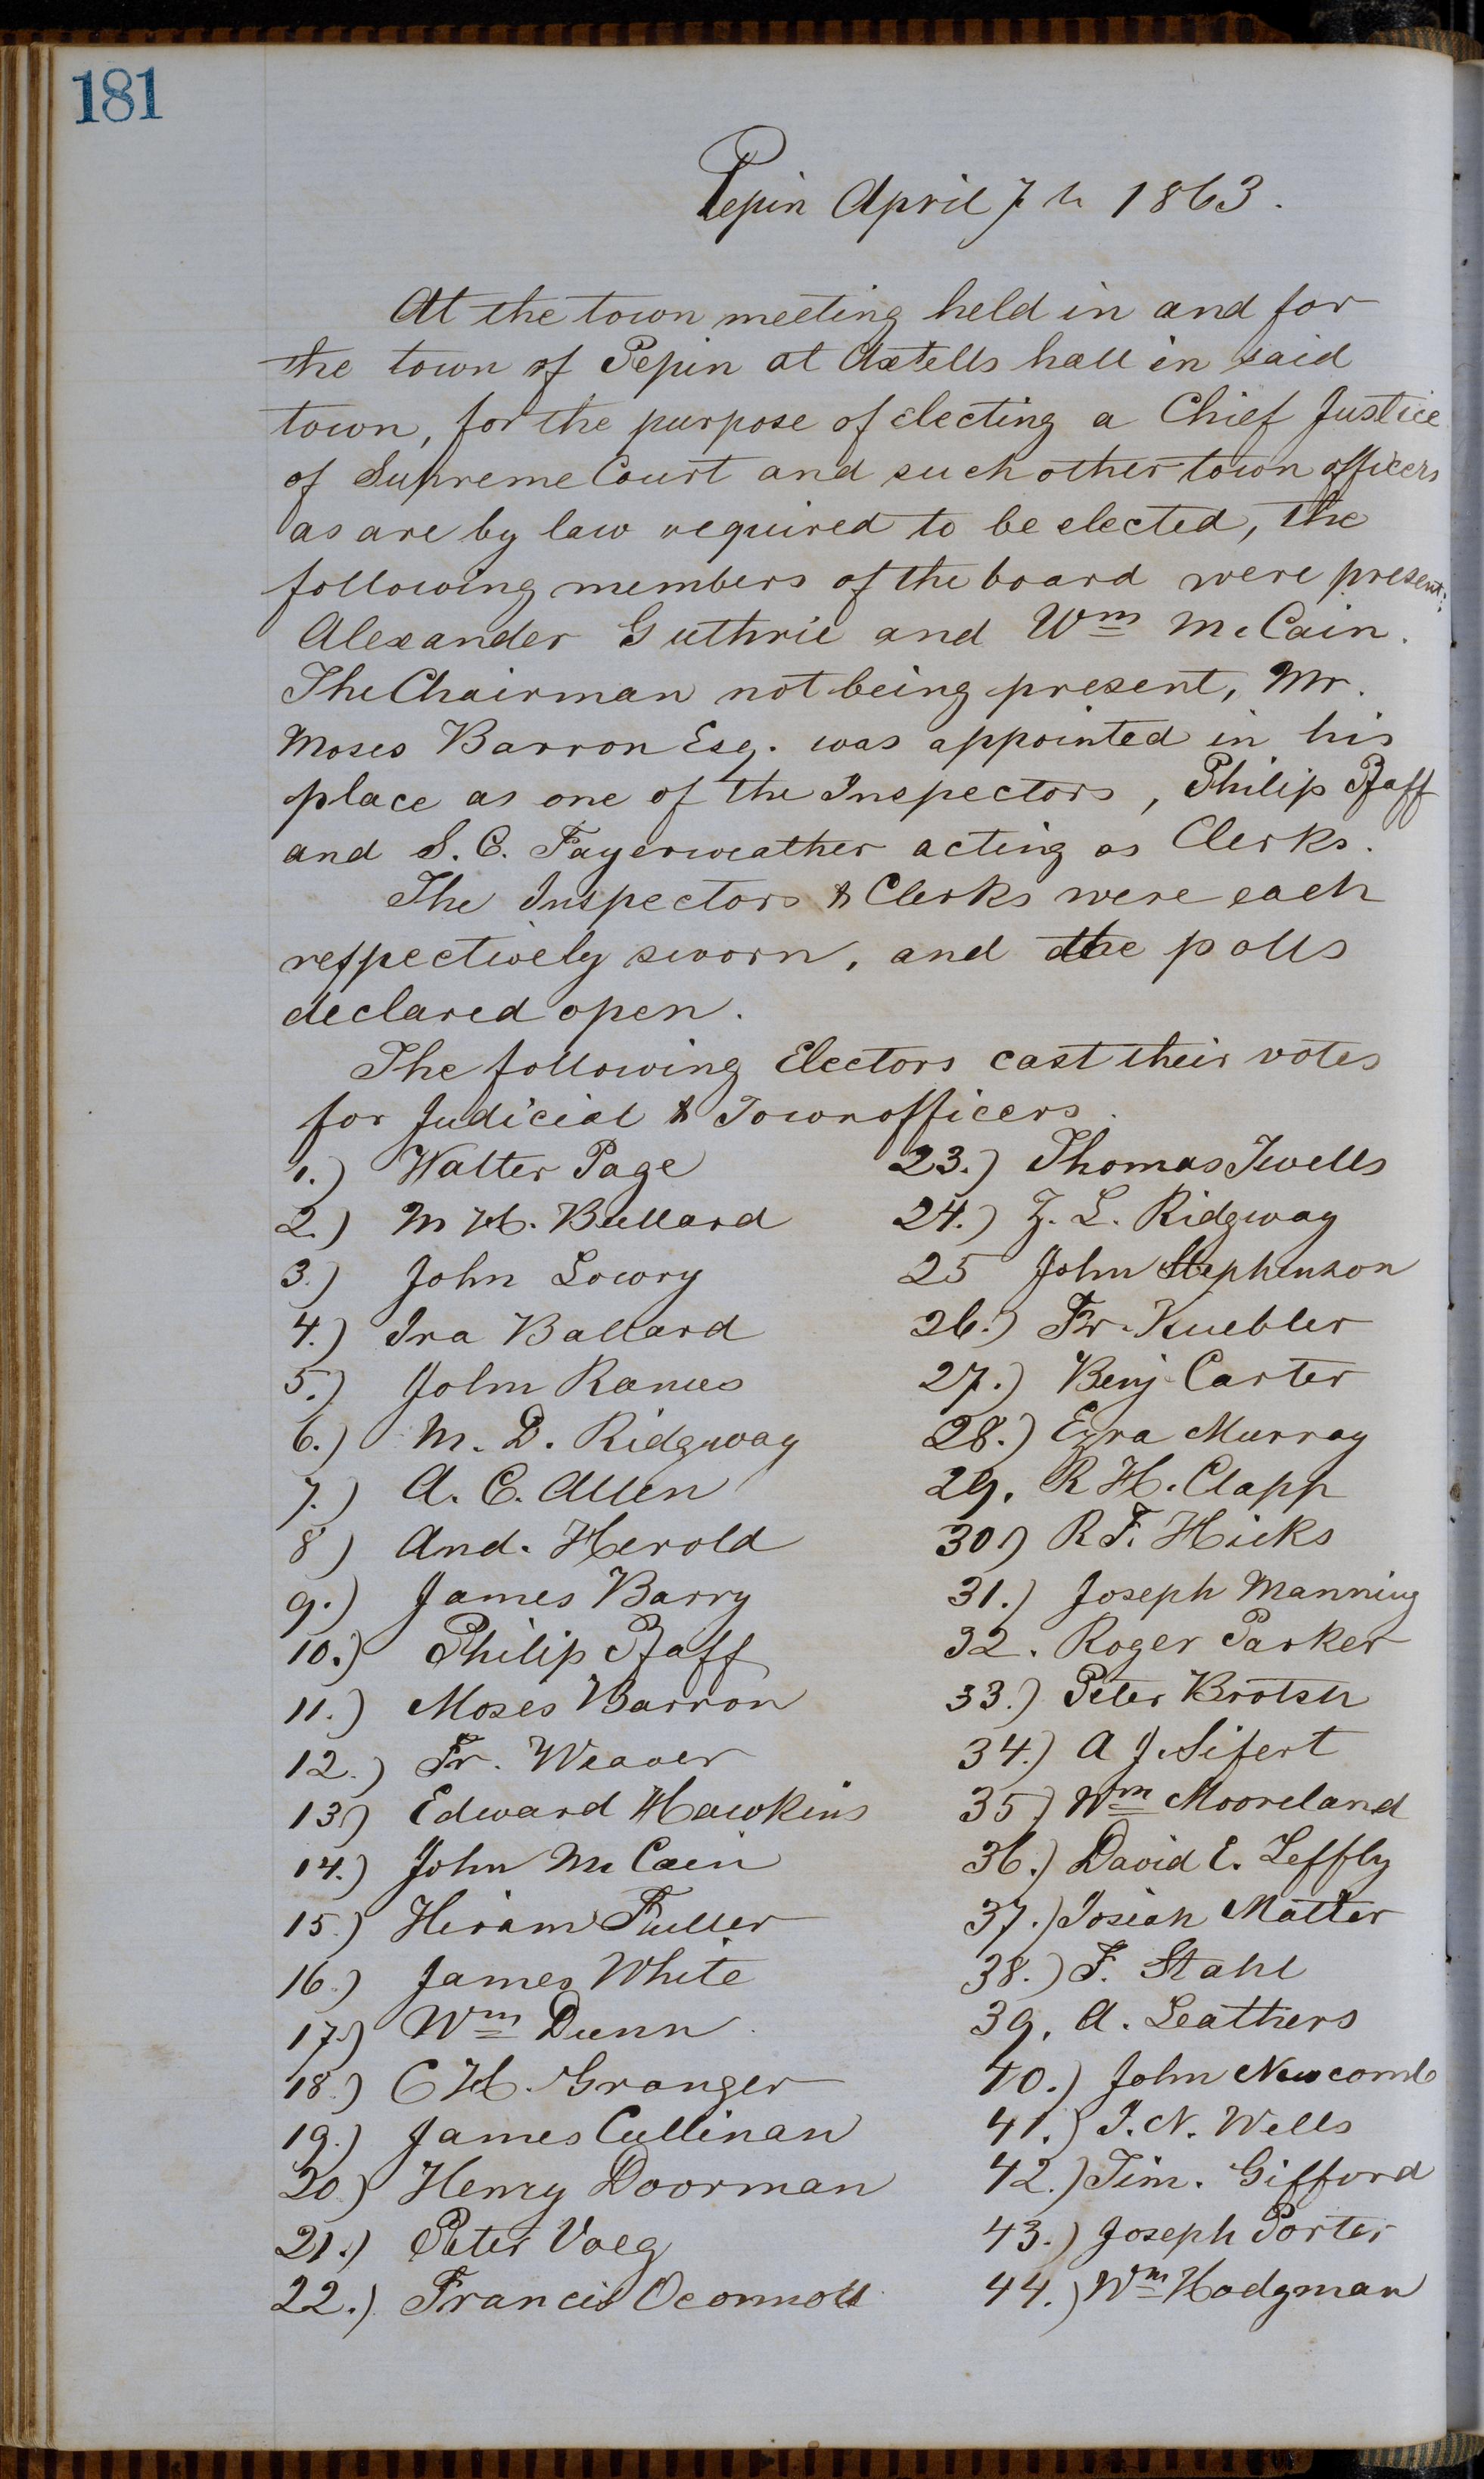 181
Pepin April 7th 1863.
At the town meeting held in and for
the town of Pepin at Axtells hall in said
town, for the purpose of electing a Chief Justice
of Supreme Court and such other town officers
as are by law required to be elected, the
following members of the board were present:
Alexander Guthrie and Wm McCain.
The Chairman not being present, Mr.
Moses Barron Esq. was appointed in his
place as one of the Inspectors, Philip Pfaff
and S. C. Fayerweather acting as Clerks.
The Inspectors & Clerks were each
respectively sworn, and the polls
declared open.
The following Electors cast their votes
for Judicial & Town officers.
1.) Walter Page
2.) M H. Bullard
3.) John Lowry
4.) Ira Ballard
5.) John
6.) M. D. Ridgway
7.) A. C. Allen
8) And. Herold
9.) James Barry
10.) Philip Pfaff
11.) Moses Barron
12.) Fr. Weaver
13) Edward Hawkins
14.) John McCain
15.) Hiram Fuller
16.) James White
17.) Wm Dunn
18.) C H. Granger
19.) James Cullinan
20.) Henry Doorman
21.) Peter Voeg
22.) Francis Oconnoll
23.) Thomas Twells
24.) Z. L. Ridgway
25 John Stephenson
26.) Fr. Kuebler
27.) Benj Carter
28.) Ezra Murray
29. R H. Clapp
30) R F. Hicks
31.) Joseph Manning
32. Roger Parker
33.) Peter Brotsh
34.) A J. Sifert
35) Wm Mooreland
36.) David E. Leffly
37.) Josiah Matter
38.) F. Stahl
39. A. Leathers
40.) John Newcomb
41.) T. N. Wells
42.) Tim. Gifford
43.) Joseph Porter
44.) Wm Hodgman